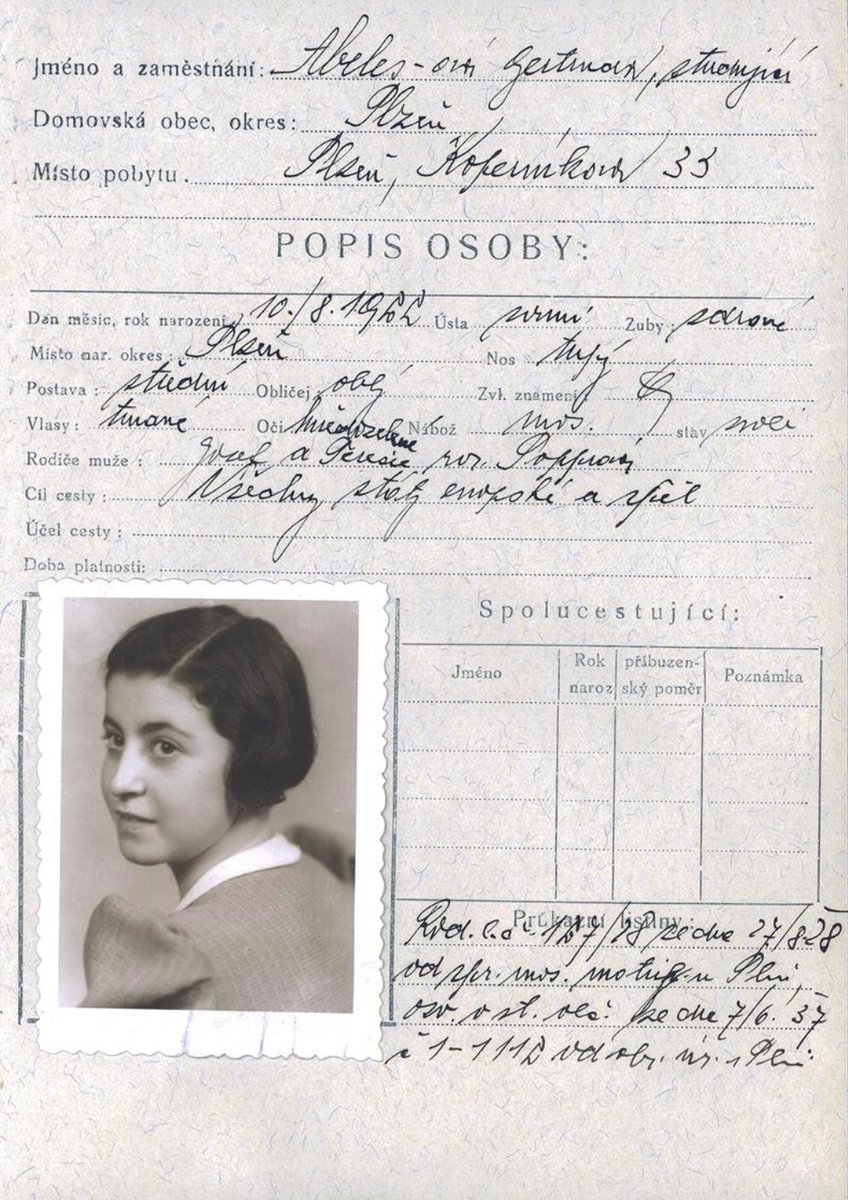 Jméno a zaměstnání: Abeles-ová Gertruda, studující
Domovská obec, okres: Plzeň
Místo pobytu. Plzeň, Koperníkova 33
POPIS OSOBY:
Dan měsíc, rok narození 10./8. 1922 Ústa Zuby: zdravé
Místo nar. okres: Plzeň Nos tupý
Postava: střední Obličej oblý Zvl. znamení:
Vlasy: tmavé Oči hnědozelené Nábož mos. stav svob.
Rodiče muže: Josef a Terezie, roz. Popprová
Cíl cesty: Všechny státy evropské a zpět
Účel cesty:
Doba platnosti:
Spolucestující:
Jméno Rok naroz příbuzenský poměr Poznámka
Průkazní listiny:
Rod. l. č. 127/28 ze dne 27/8 28
od spr. mos. matrik v Plzni,
osv. o st. obč. ze dne 7/6. 37
č 1-1112 od okr. úř. v Plzni